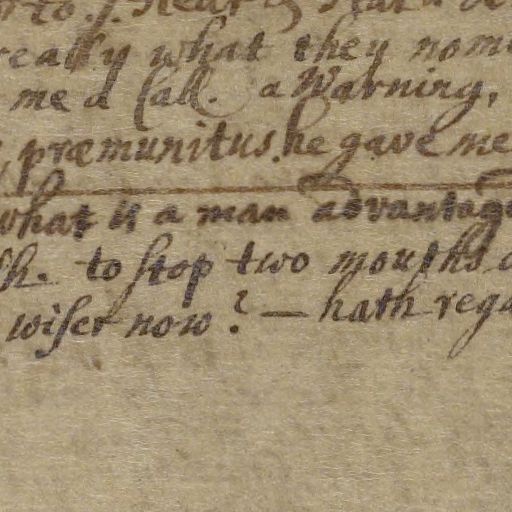 really what they nom
me a call. a Warning,
præmunitus. he gave me
what is a man advantag
to stop two mouths
wiser now? — hath rega